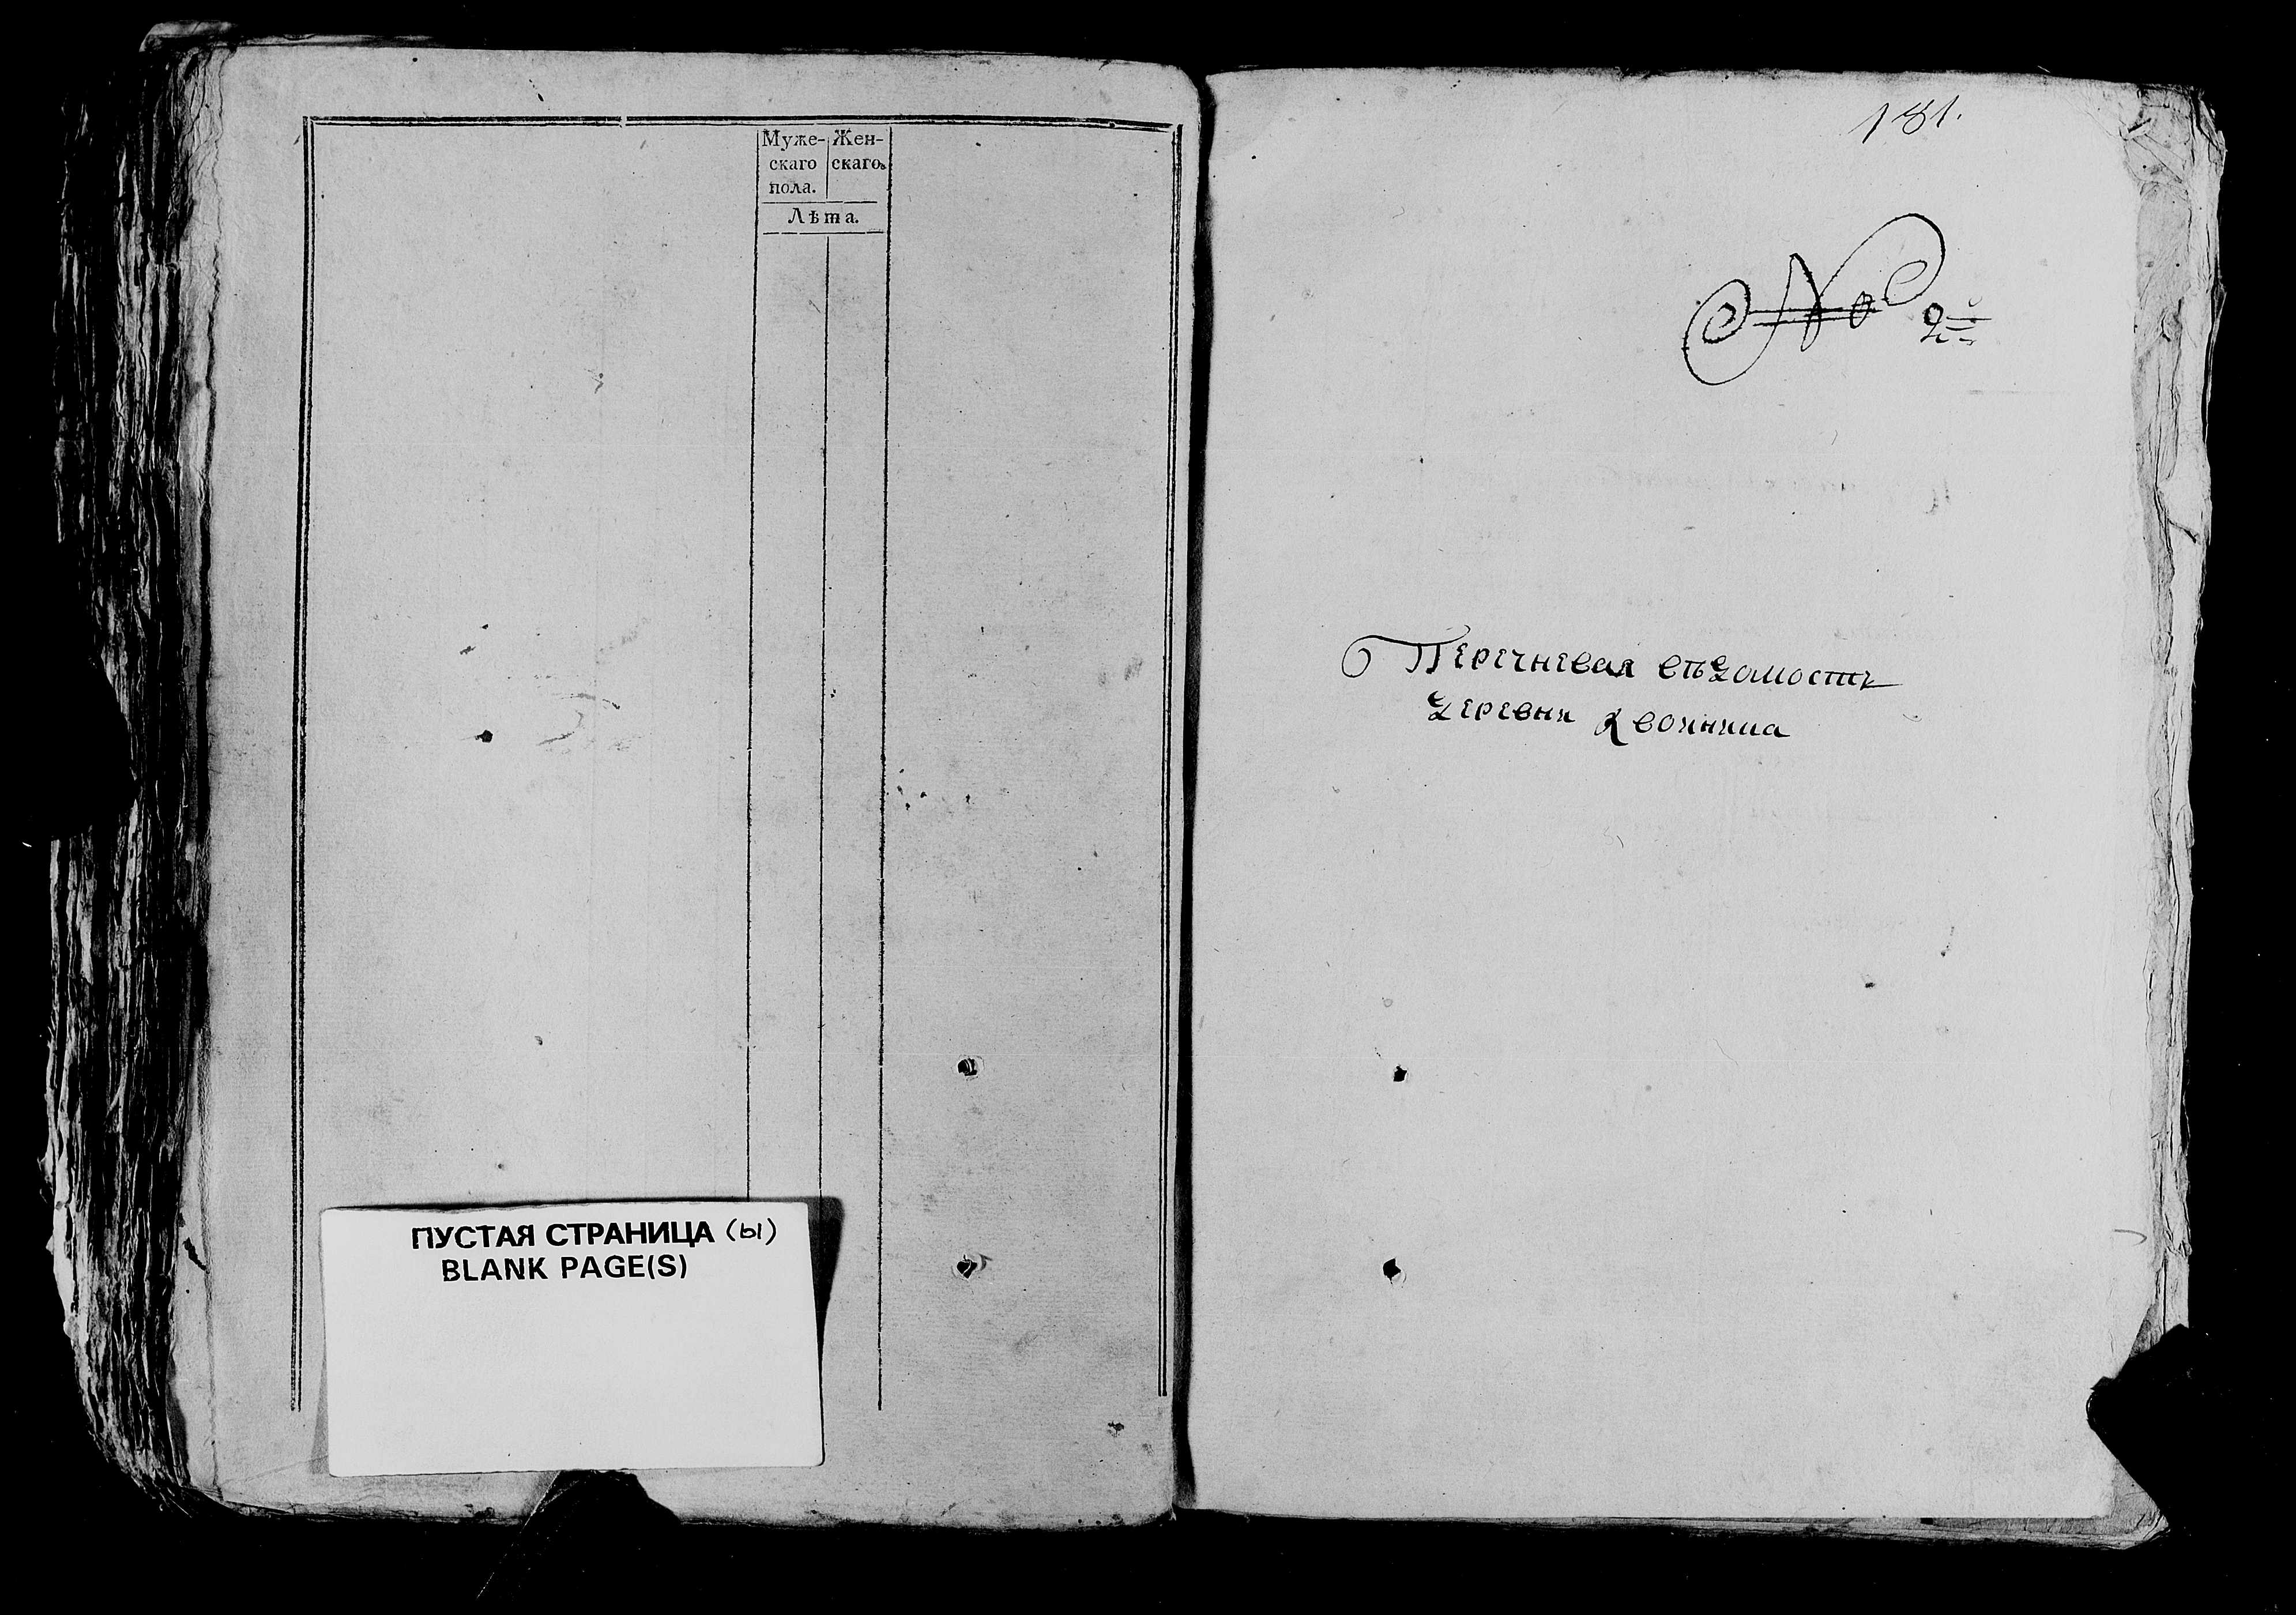 Муже-
скаго
пола.
Жен-
скаго.
Лѣта.
ПУСТАЯ СТРАНИЦА (Ы)
BLANK PAGE(S)
181.
№ 2й
Перечневая вѣдомость
деревни Квочкина